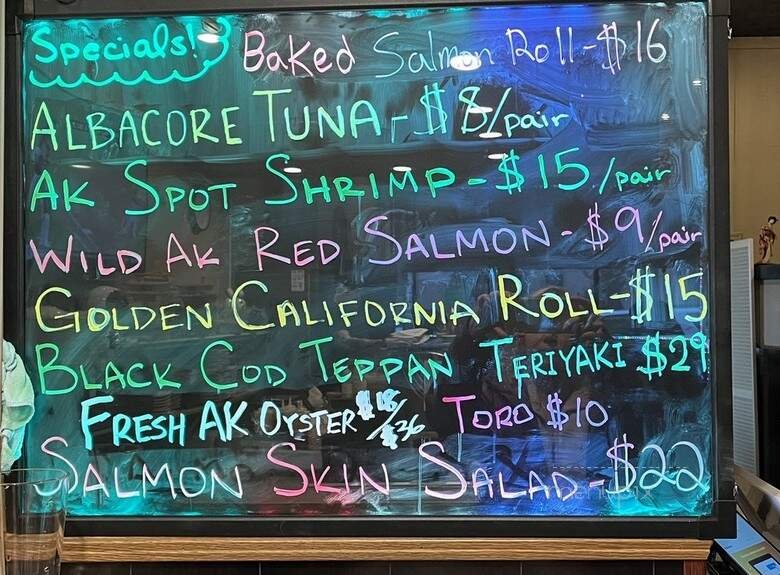 Specials! Baked Salmon Roll-$16
ALBACORE TUNA-$8/pair
AK SPOT SHRIMP-$15/pair
WILD AK RED SALMON-$9/pair
GOLDEN CALIFORNIA ROLL-$15
BLACK COD TEPPAN TERIYAKI $29
FRESH AK OYSTER $18/$36 TORO $10
SALMON SKIN SALAD-$22